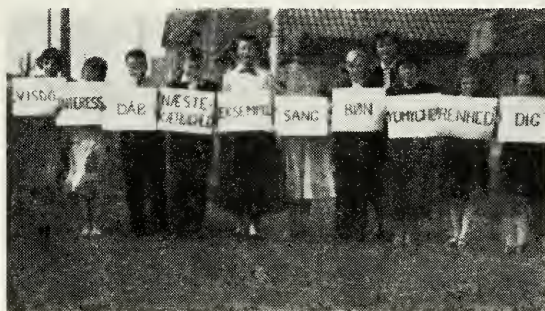 VISDO
INTERESS
DÅB
NÆSTE
KÆRLIGHED
EKSEMPEL
SANG
BØN
HØRENHED
DIG